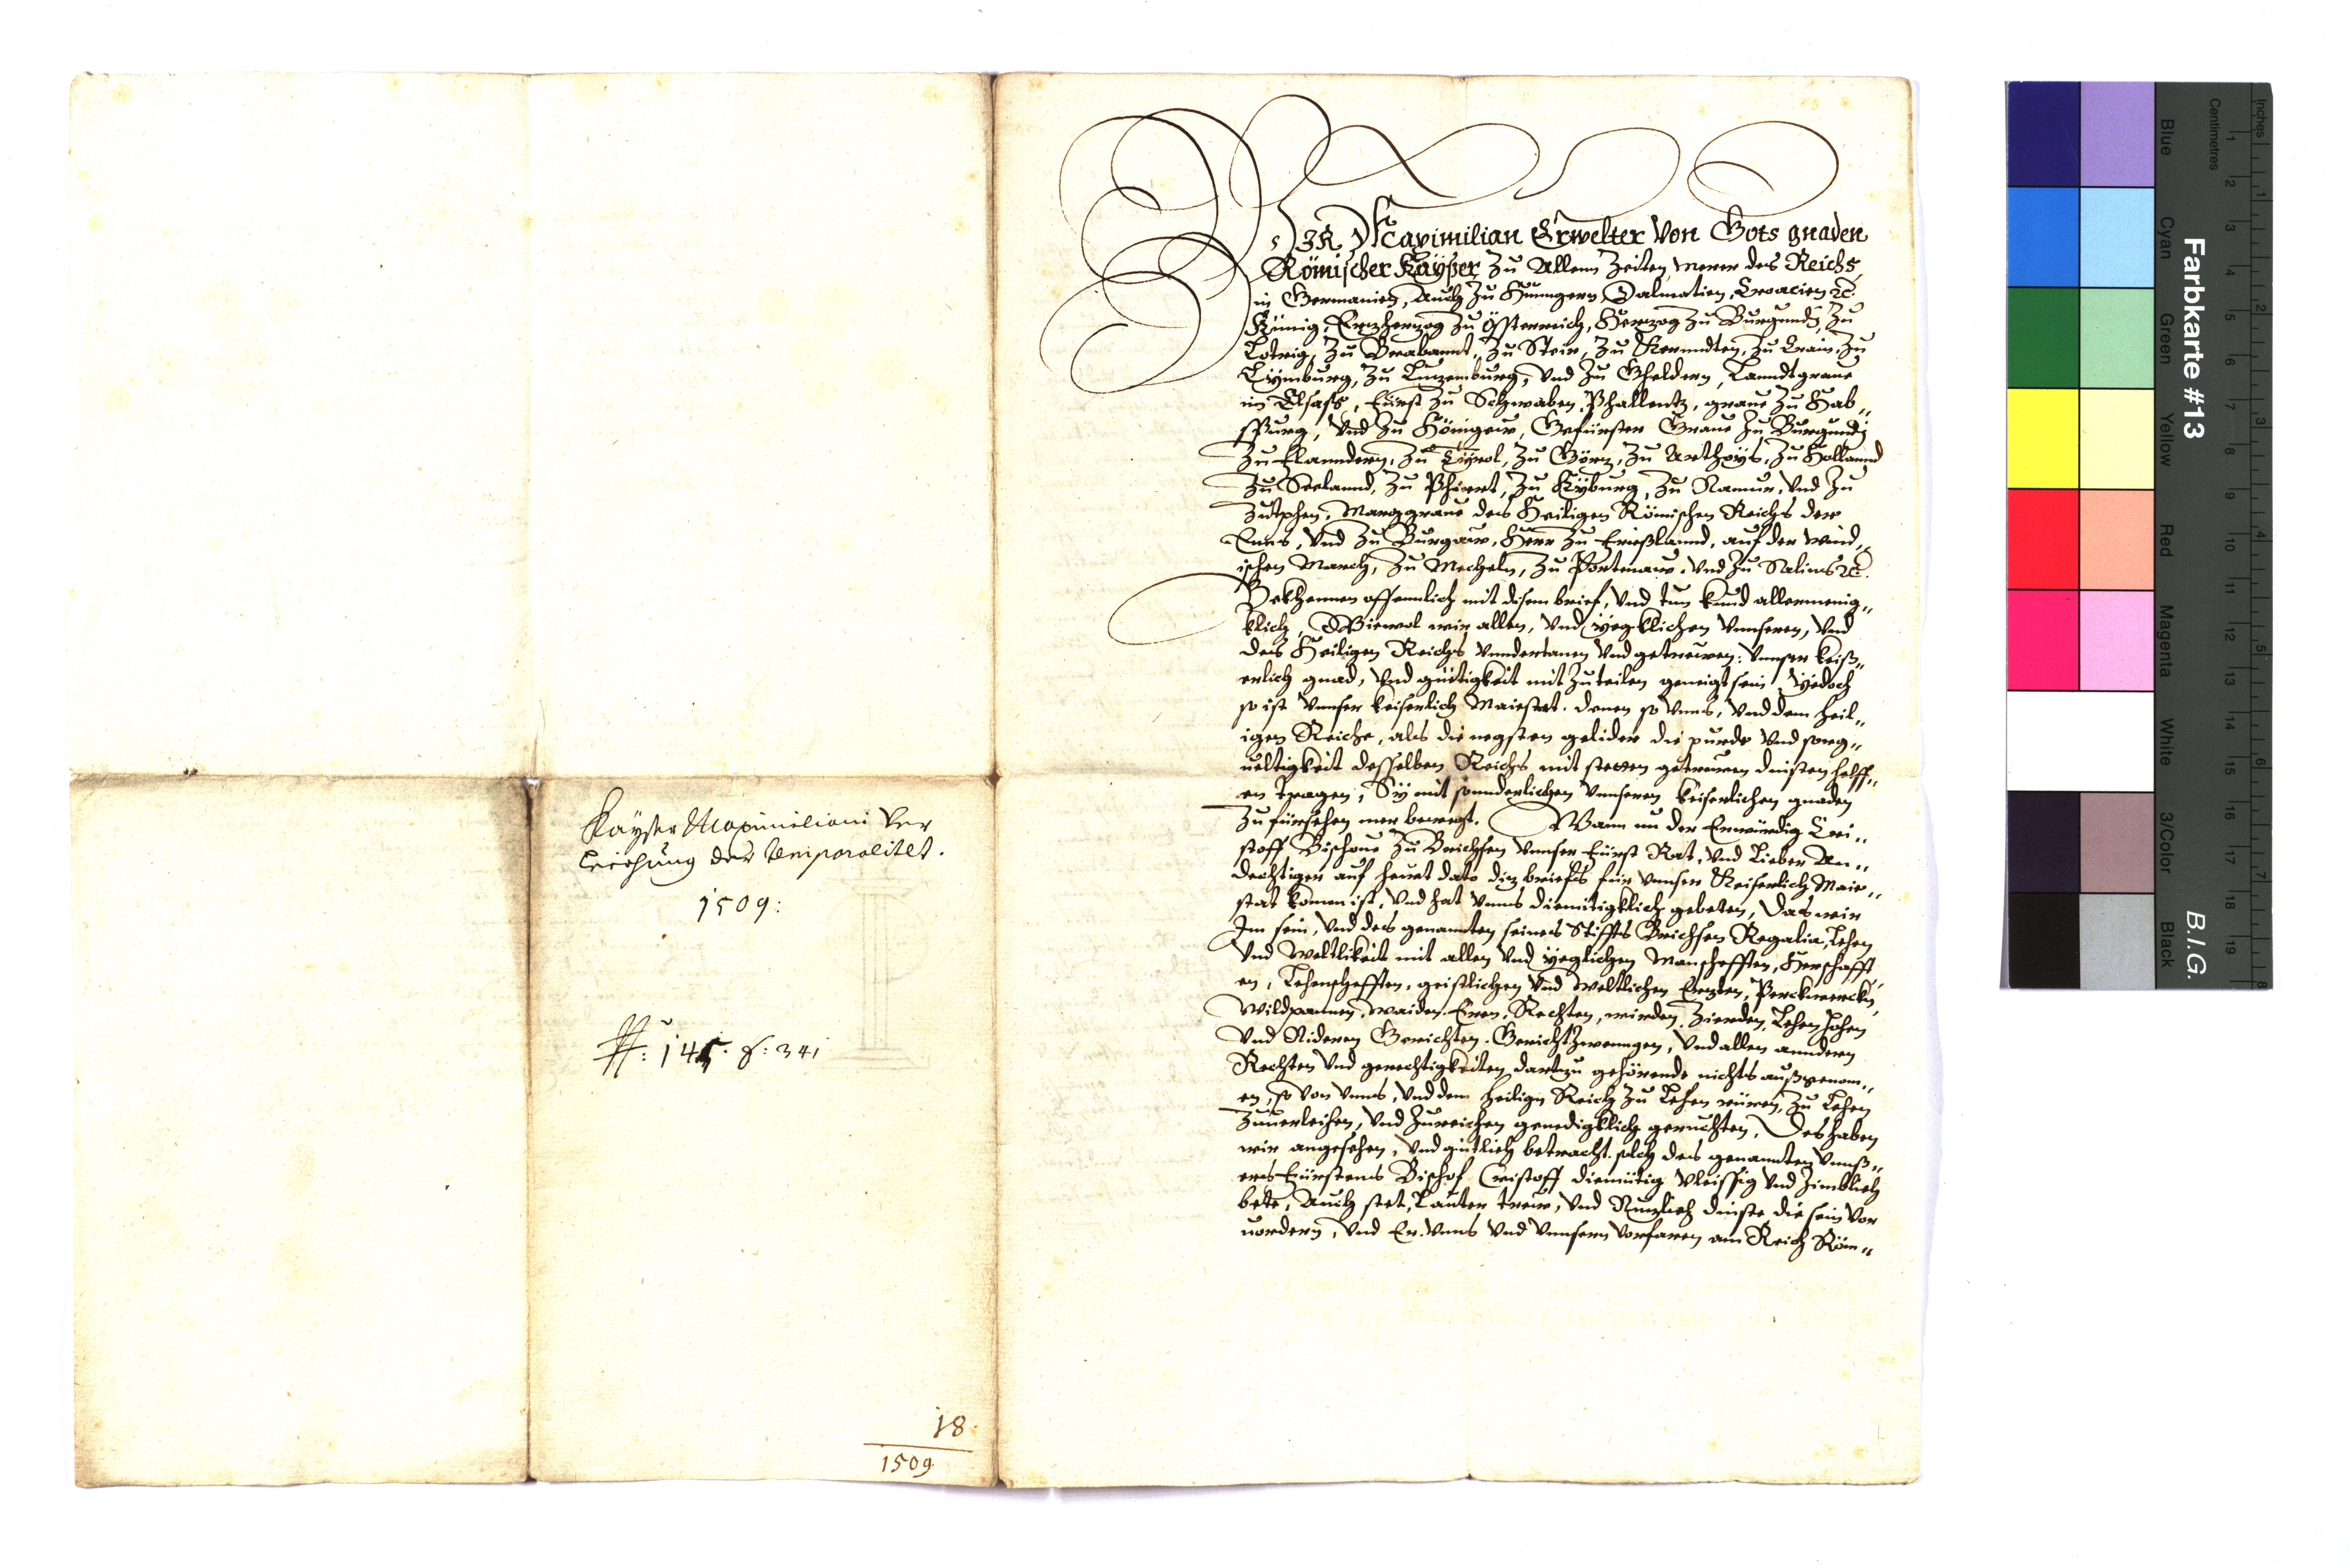 Kayser Maximiliani Ver
leichung der temporalitet.
1509:
#: 145. f: 341
18.
1509.
WIR Maximilian Erwelter Von Gots gnaden
Römischer Kayser, Zu Allenn Zeiten, merer des Reichs,
in Germanien, Auch Zu Hunngern, Dalmatien, Croacien ꝛc.
Künig, Ertzhertzog Zu Össterreich, Hertzog Zu Burgundj, Zu
Lotrig, Zu Brabannt, Zu Steir, Zu Kernndten, Zu Crain, Zu
Lymburg, Zu Lutzemburg, Vnd Zu Gheldern, Lanndtgraue
im Elsass, fürst Zu Schwaben, Phallentz, graue Zu Hab„
spurg, Vnd Zu Hönigew, Gefürster Graue Zu Burgundj
Zu flanndern, Zu Tyrol, Zu Görtz, Zu Arthoys, Zu Hollannd
Zu Seelannd, Zu Phiert, Zu Kyburg, Zu Namur, Vnd Zu
Zutphen, Marggraue des Heiligen Römischen Reichs der
Enns, Vnd Zu Burgaw, Herr Zu frießlannd, auf der wind„
ischen March, Zu Mecheln, Zu Portnaw, Vnd Zu Salins ꝛc.
Bekhennen offennlich mit disem brief, Vnd tun kund allermenig„
klich, Wiewol wir allen, Vnd yegklichen Vnnseren, Vnd
des Heiligen Reichs Vnndertanen Vnd getrewen: Vnnser keiß„
erlich gnad, Vnd gütigkeit mit Zuteilen geneigt sein, Yedoch
so ist Vnnser keiserlich Maiestat. denen so Vnns, Vnd dem heil„
igen Reiche, als die negsten gelider die purde Vnd sorg„
ueltigkeit desselben Reichs mit stetten getrewen dinsten helff„
en tragen, Sy mit sonnderlichen Vnnseren keiserlichen gnaden
Zufürsehen mer bewegt. Wann nu der Erwürdig Cri„
stoff Bischoue Zu Brichsen Vnnser fürst Rat, Vnd Lieber An„
dechtiger auf heuet dato ditz briefs für Vnnser Keiserlich Maie„
stat komen ist, Vnd hat Vnns diemütigklich gebeten, Das wir
Im sein, Vnd des genanten seines Stiffts Brichsen Regalia, Lehen
Vnd Weltlikeit mit allen Vnd yeglichen Manschefften, Herschafft„
en, Lehenschefften, geistlichen Vnd Weltlichen Ertzten, Perckwercken,
Wildpannen, waiden, Eren, Rechten, wirden, Zierden, Lehen, hohen
Vnd Nideren Gerichten, Gerichtzwenngen, Vnd allen annderen
Rechten Vnd gerechtigkeiten dartzu gehörende nichts außgenom„
en, so von Vnns, Vnd dem Heiligen Reich Zu Lehen rüren, Zu Lehen
Zuuerleihen, Vnd Zureichen genedigklich geruchten, Des haben
wir angesehen, Vnd gütlich betracht. solch des genannten Vnnß„
ers fürstens Bischof Cristoff diemütig Vleissig Vnd Zimblich
bete, Auch stet, Lauter trew, Vnd Nutzlich dinste die sein Vor
uordern, Vnd Er. Vnns Vnd Vnnsern Vorfaren am Reich Röm„
Farbkarte #13
B.I.G.
Blue
Cyan
Green
Yellow
Red
Magenta
White
3/Color
Black
Centimetres
Inches
1 2 3 4 5 6 7 8 9 10 11 12 13 14 15 16 17 18 19
1 2 3 4 5 6 7 8